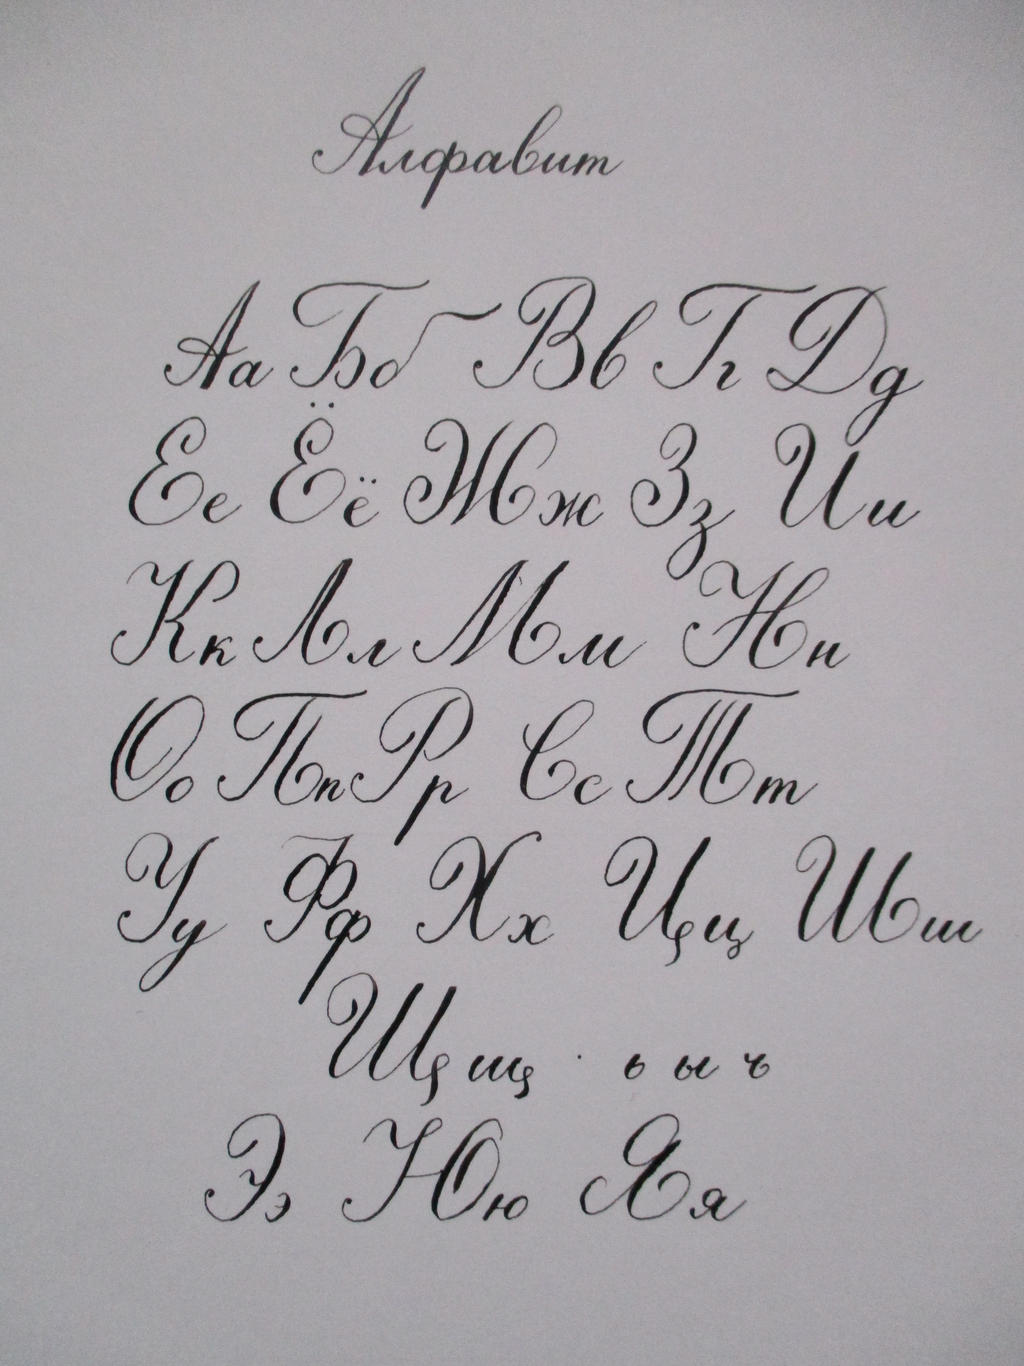 Алфавит
Аа Бб Вв Гг Дд
Ее Ёё Жж Зз Ии
Кк Лл Мм Нн
Оо Пп Рр Сс Тт
Уу Фф Хх Цц Шш
Щщ ь ы ъ
Ээ Юю Яя